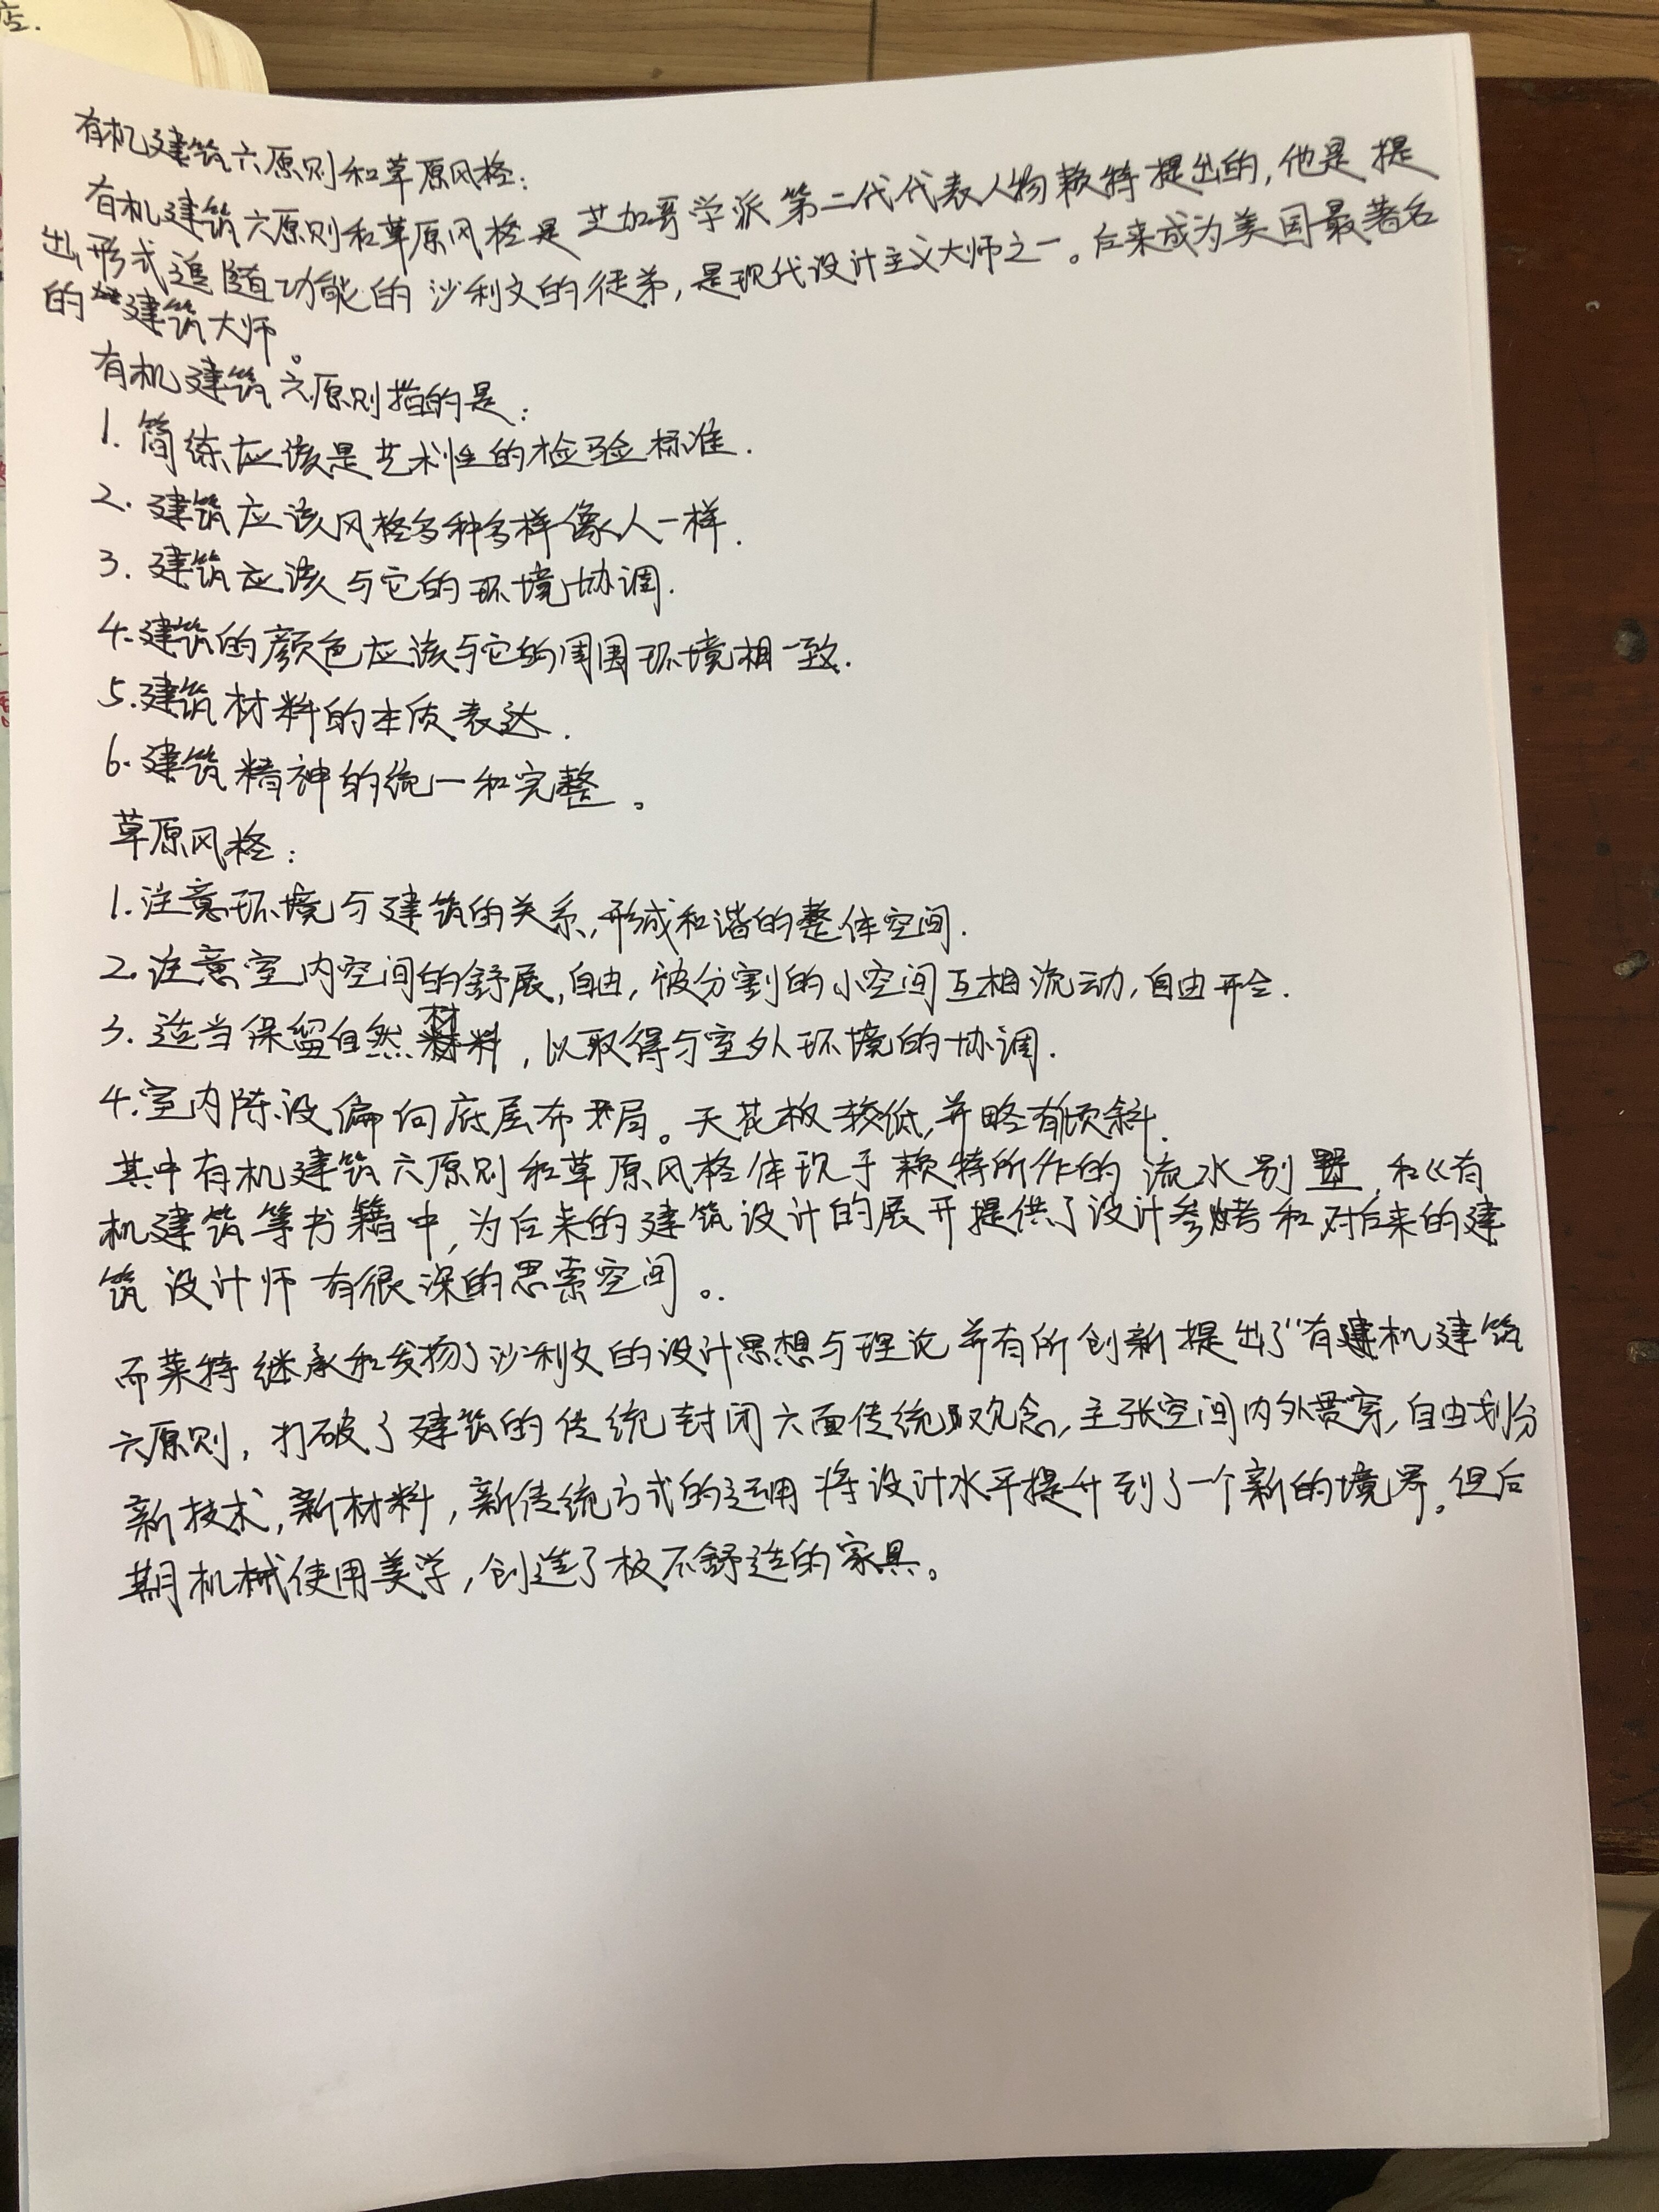 店.
有机建筑六原则和草原风格:
有机建筑六原则和草原风格是芝加哥学派第二代代表人物赖特提出的,他是提
出形式追随功能的沙利文的徒弟,是现代设计主义大师之一。后来成为美国最著名
的建筑大师。
有机建筑六原则指的是:
1. 简练应该是艺术性的检验标准.
2. 建筑应该风格多种多样像人一样.
3. 建筑应该与它的环境协调.
4.建筑的颜色应该与它的周围环境相一致.
5.建筑材料的本质表达.
6.建筑精神的统一和完整。
草原风格:
1.注意环境与建筑的关系,形成和谐的整体空间.
2.注意室内空间的舒展,自由,被分割的小空间互相流动,自由开合.
3.适当保留自然材料,以取得与室外环境的协调.
4.室内陈设偏向底层布局。天花板较低,并略有倾斜.
其中有机建筑六原则和草原风格体现于赖特所作的流水别墅,和《有
机建筑等书籍中,为后来的建筑设计的展开提供了设计参考和对后来的建
筑设计师有很深的思索空间。.
而莱特继承和发扬了沙利文的设计思想与理论并有所创新提出了"有机建筑
六原则,打破了建筑的传统封闭六面传统观念,主张空间内外贯穿,自由划分
新技术,新材料,新传统方式的运用将设计水平提升到了一个新的境界。但后
期机械使用美学,创造了极不舒适的家具。